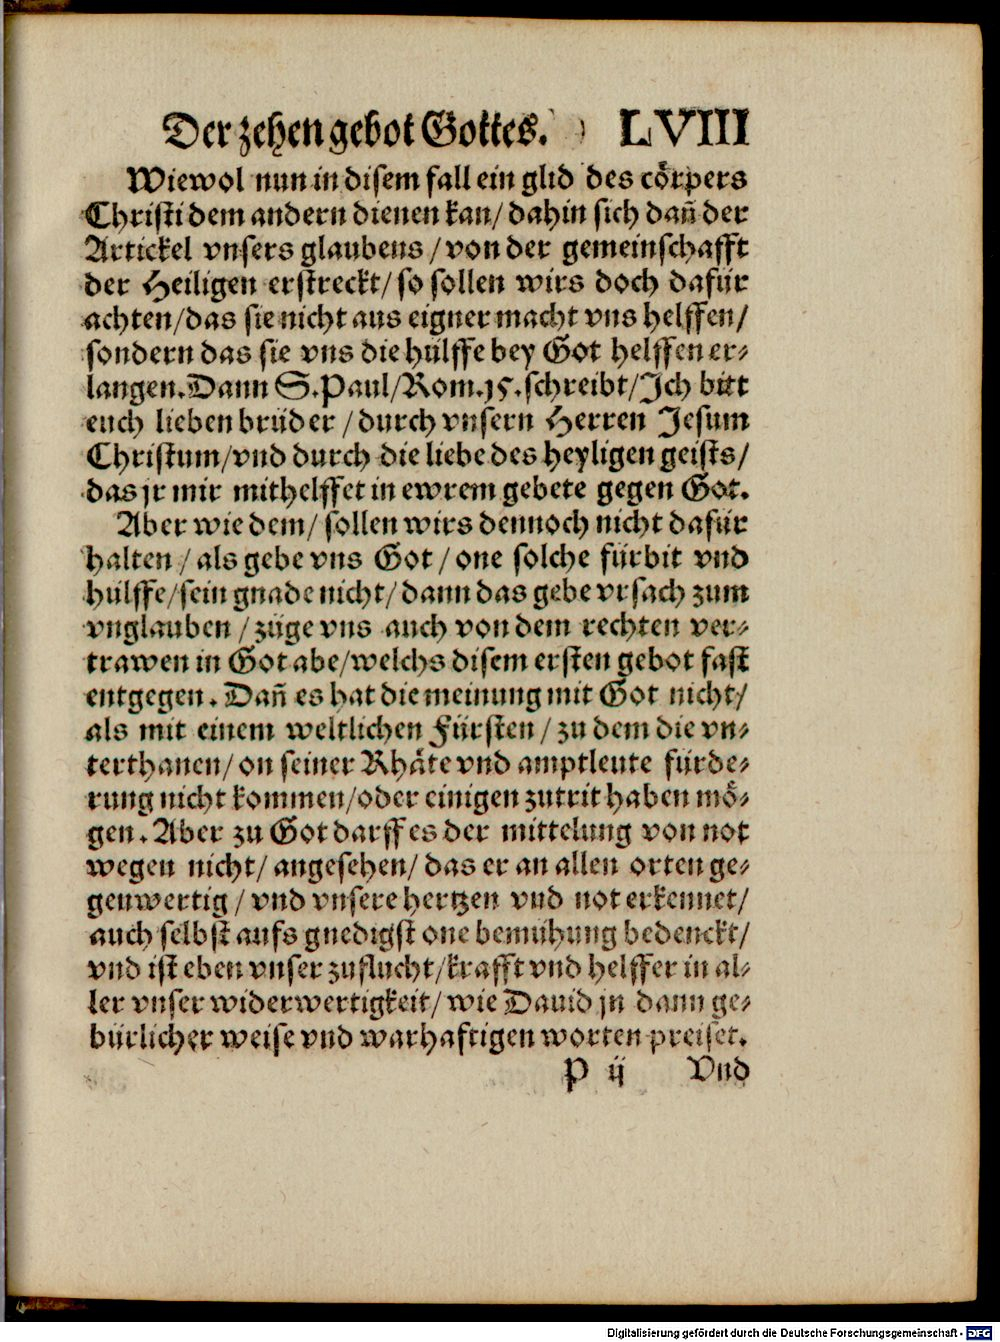 Der zehen gebot Gottes. LVIII
Wiewol nun in disem fall ein glid des cörpers
Christi dem andern dienen kan/ dahin sich dañ der
Artickel vnsers glaubens / von der gemeinschafft
der Heiligen erstreckt/ so sollen wirs doch dafür
achten/das sie nicht aus eigner macht vns helffen/
sondern das sie vns die hülffe bey Got helffen er-
langen. Dann S. Paul/Rom. 15. schreibt/Ich bitt
euch lieben brüder / durch vnsern Herren Jesum
Christum/vnd durch die liebe des heyligen geists/
das jr mir mithelffet in ewrem gebete gegen Got.
Aber wie dem/ sollen wirs dennoch nicht dafür
halten / als gebe vns Got / one solche fürbit vnd
hülffe/sein gnade nicht/ dann das gebe vrsach zum
vnglauben / züge vns auch von dem rechten ver-
trawen in Got abe/welchs disem ersten gebot fast
entgegen. Dañ es hat die meinung mit Got nicht/
als mit einem weltlichen Fürsten / zu dem die vn-
terthanen/ on seiner Rhäte vnd amptleute fürde-
rung nicht kommen/oder einigen zutrit haben mö-
gen. Aber zu Got darff es der mittelung von not
wegen nicht/ angesehen/ das er an allen orten ge-
genwertig / vnd vnsere hertzen vnd not erkennet/
auch selbst aufs gnedigst one bemühung bedenckt/
vnd ist eben vnser zuflucht/krafft vnd helffer in al-
ler vnser widerwertigkeit/ wie Dauid jn dann ge-
bürlicher weise vnd warhafftigen worten preiset.
P ij Vnd
Digitalisierung gefördert durch die Deutsche Forschungsgemeinschaft - DFG